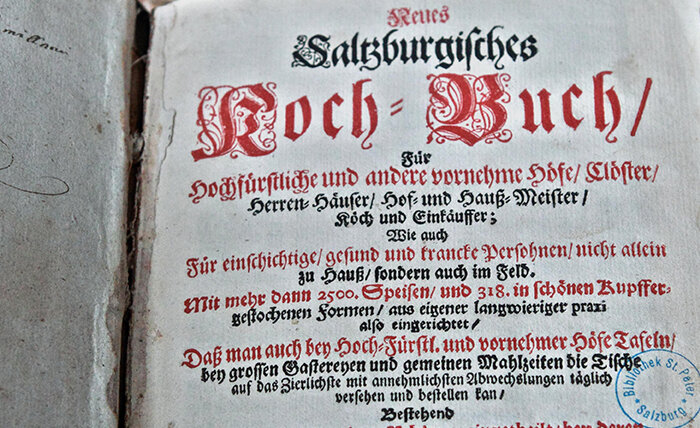 Neues
Saltzburgisches
Koch-Buch/
Für
Hochfürstliche und andere vornehme Höfe/ Clöster/
Herren-Häuser/ Hof- und Hauß-Meister/
Köch und Einkäuffer;
Wie auch
Für einschichtige/ gesund und krancke Persohnen/ nicht allein
zu Hauß/ sondern auch im Feld.
Mit mehr dann 2500. Speisen/ und 318. in schönen Kupffer-
gestochenen Formen/ aus eigener langwieriger praxi
also eingerichtet/
Daß man auch bey Hoch-Fürstl. und vornehmer Höfe Tafeln/
bey grossen Gastereyen und gemeinen Mahlzeiten die Tische
auf das Zierlichste mit annehmlichsten Abwechslungen täglich
versehen und bestellen kan/
Bestehend
Bibliothek St. Peter
Salzburg